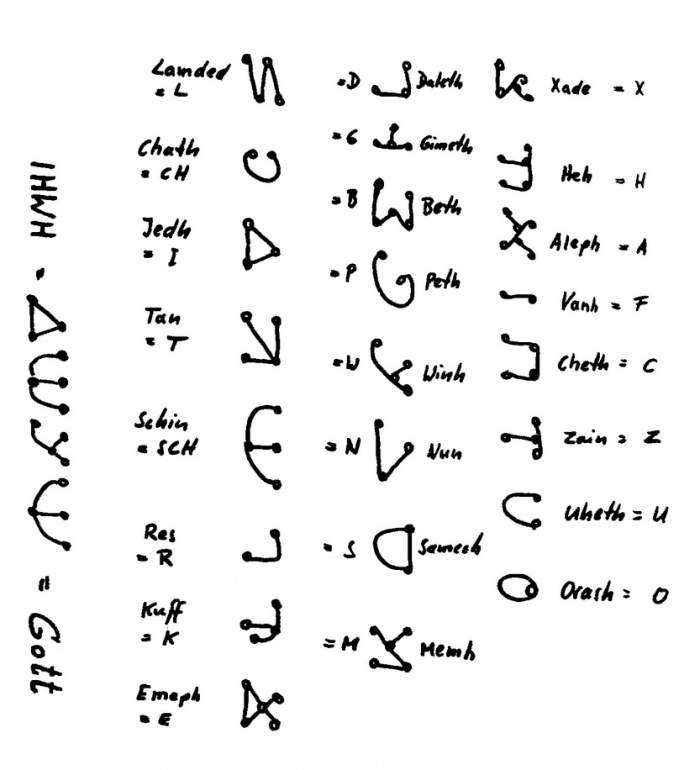 IHWH = = Gott
Lamded
= L
Chath
= CH
Jedh
= I
Tan
= T
Schin
= SCH
Res
= R
Kuff
= K
Emeph
= E
= D Daleth
= G Gimeth
= B Beth
= P Peth
= W Winh
= N Nun
= S Samech
= M Memh
Xade = X
Heh = H
Aleph = A
Vanh = F
Cheth = C
Zain = Z
Uheth = U
Orash = O